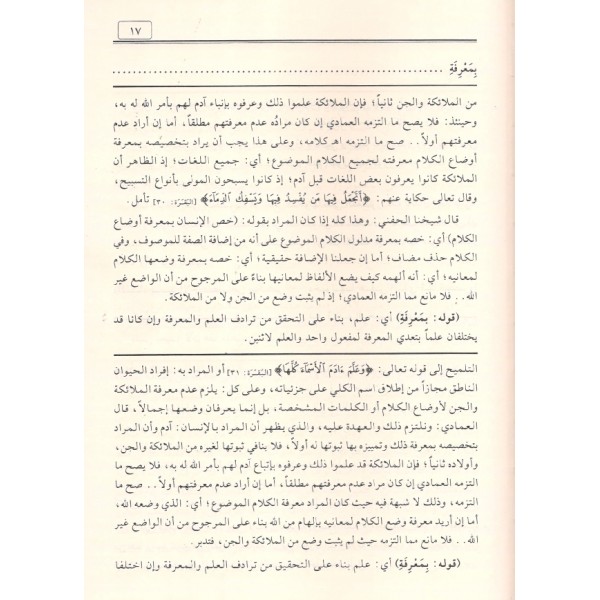 ١٧
بِمَعْرِفَةِ ................................................................
من الملائكة والجن ثانياً؛ فإن الملائكة علموا ذلك وعرفوه بإنباء آدم لهم بأمر الله له به،
وحينئذ: فلا يصح ما التزمه العمادي إن كان مرادُه عدم معرفتهم مطلقاً، أما إن أراد عدم
معرفتهم أولاً.. صح ما التزمه اهـ كلامه، وعلى هذا يجب أن يراد بتخصيصُه بمعرفة
أوضاع الكلام معرفته لجميع الكلام الموضوع؛ أي: جميع اللغات؛ إذ الظاهر أن
الملائكة كانوا يعرفون بعض اللغات قبل آدم؛ إذ كانوا يسبحون المولى بأنواع التسبيح،
وقال تعالى حكاية عنهم: ﴿أَتَجْعَلُ فِيهَا مَن يُفْسِدُ فِيهَا وَيَسْفِكُ الدِّمَآءَ﴾ [البَقَرَة: ٣٠] تأمل.
قال شيخنا الحفني: وهذا كله إذا كان المراد بقوله: (خص الإنسان بمعرفة أوضاع
الكلام) أي: خصه بمعرفة مدلول الكلام الموضوع على أنه من إضافة الصفة للموصوف، وفي
الكلام حذف مضاف؛ أما إن جعلنا الإضافة حقيقية؛ أي: خصه بمعرفة وضعها الكلام
لمعانيه؛ أي: أنه ألهمه كيف يضع الألفاظ لمعانيها بناءً على المرجوح من أن الواضع غير
الله.. فلا مانع مما التزمه العمادي؛ إذ لم يثبت وضع من الجن ولا من الملائكة.
(قوله: بِمَعْرِفَةِ) أي: علم، بناء على التحقق من ترادف العلم والمعرفة وإن كانا قد
يختلفان علماً بتعدي المعرفة لمفعول واحد والعلم لاثنين.
التلميح إلى قوله تعالى: ﴿وَعَلَّمَ ءَادَمَ الْأَسْمَآءَ كُلَّهَا﴾ [البَقَرَة: ٣١] أو المراد به: إفراد الحيوان
الناطق مجازاً من إطلاق اسم الكلي على جزئياته، وعلى كل: يلزم عدم معرفة الملائكة
والجن لأوضاع الكلام أو الكلمات المشخصة، بل إنما يعرفان وضعها إجمالاً، قال
العمادي: ونلتزم ذلك والعهدة عليه، والذي يظهر أن المراد بالإنسان: آدم وأن المراد
بتخصيصه بمعرفة ذلك وتمييزه بها ثبوتها له أولاً، فلا ينافي ثبوتها لغيره من الملائكة والجن،
وأولاده ثانياً؛ فإن الملائكة قد علموا ذلك وعرفوه بإتباع آدم لهم بأمر الله له به، فلا يصح ما
التزمه العمادي إن كان مراد عدم معرفتهم مطلقاً، أما إن أراد عدم معرفتهم أولاً.. صح ما
التزمه، وذلك لا شبهة فيه حيث كان المراد معرفة الكلام الموضوع؛ أي: الذي وضعه الله،
أما إن أريد معرفة وضع الكلام لمعانيه بإلهام من الله بناء على المرجوح من أن الواضع غير
الله.. فلا مانع مما التزمه حيث لم يثبت وضع من الملائكة والجن، فتدبر.
(قوله: بِمَعْرِفَةِ) أي: علم بناء على التحقيق من ترادف العلم والمعرفة وإن اختلفا